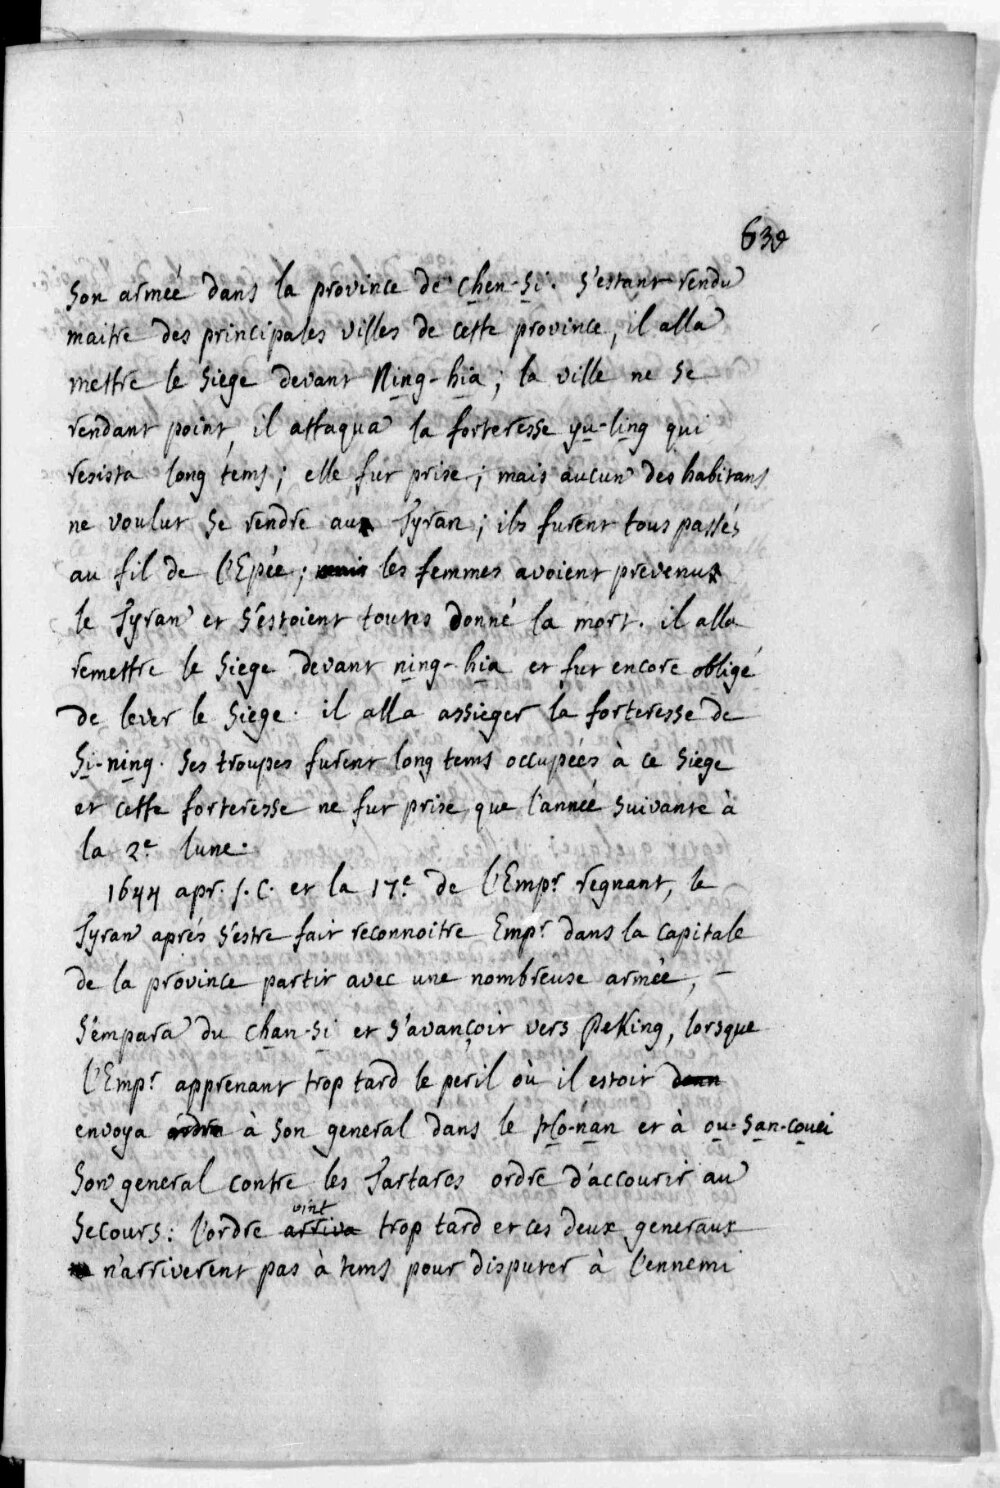 639
son armée dans la province de chen-si. s'estant rendu
maitre des principales villes de cette province, il alla
mettre le siege devant Ning-hia; la ville ne se
rendant point, il attaqua la forteresse yu-ling qui
resista long tems; elle fut prise; mais aucun des habitans
ne voulut se rendre au Tyran; ils furent tous passés
au fil de l'Epée; mais les femmes avoient prevenu
le Tyran et s'estoient toutes donné la mort. il alla
remettre le siege devant ning-hia et fut encore obligé
de lever le siege. il alla assieger la forteresse de
Si-ning. ses troupes furent long tems occupées à ce siege
et cette forteresse ne fut prise que l'année suivante à
la 2e lune.
1644 apr. J. C. et la 17e de l'Empr regnant, le
Tyran aprés s'estre fait reconnoitre Empr dans la capitale
de la province partit avec une nombreuse armée,
s'empara du chan-si et s'avançoit vers PeKing, lorsque
l'Empr apprenant trop tard le peril où il estoit donn
envoya ordre à son general dans le Ho-nan et à ou-san-couei
son general contre les Tartares ordre d'accourir au
vint
secours: l'ordre arriva trop tard et ces deux generaux
n'arriverent pas à tems pour disputer à l'ennemi